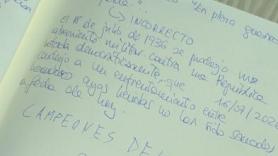 en plena guerra
↳ INCORRECTO
el 18 de julio de 1936 se produjo un
alzamiento militar contra una República
votada democráticamente que
condujo a un enfrentamiento entre
cuyas heridas no han sido sanadas
a fecha de hoy.
16/09/202
CAMPEONES DE